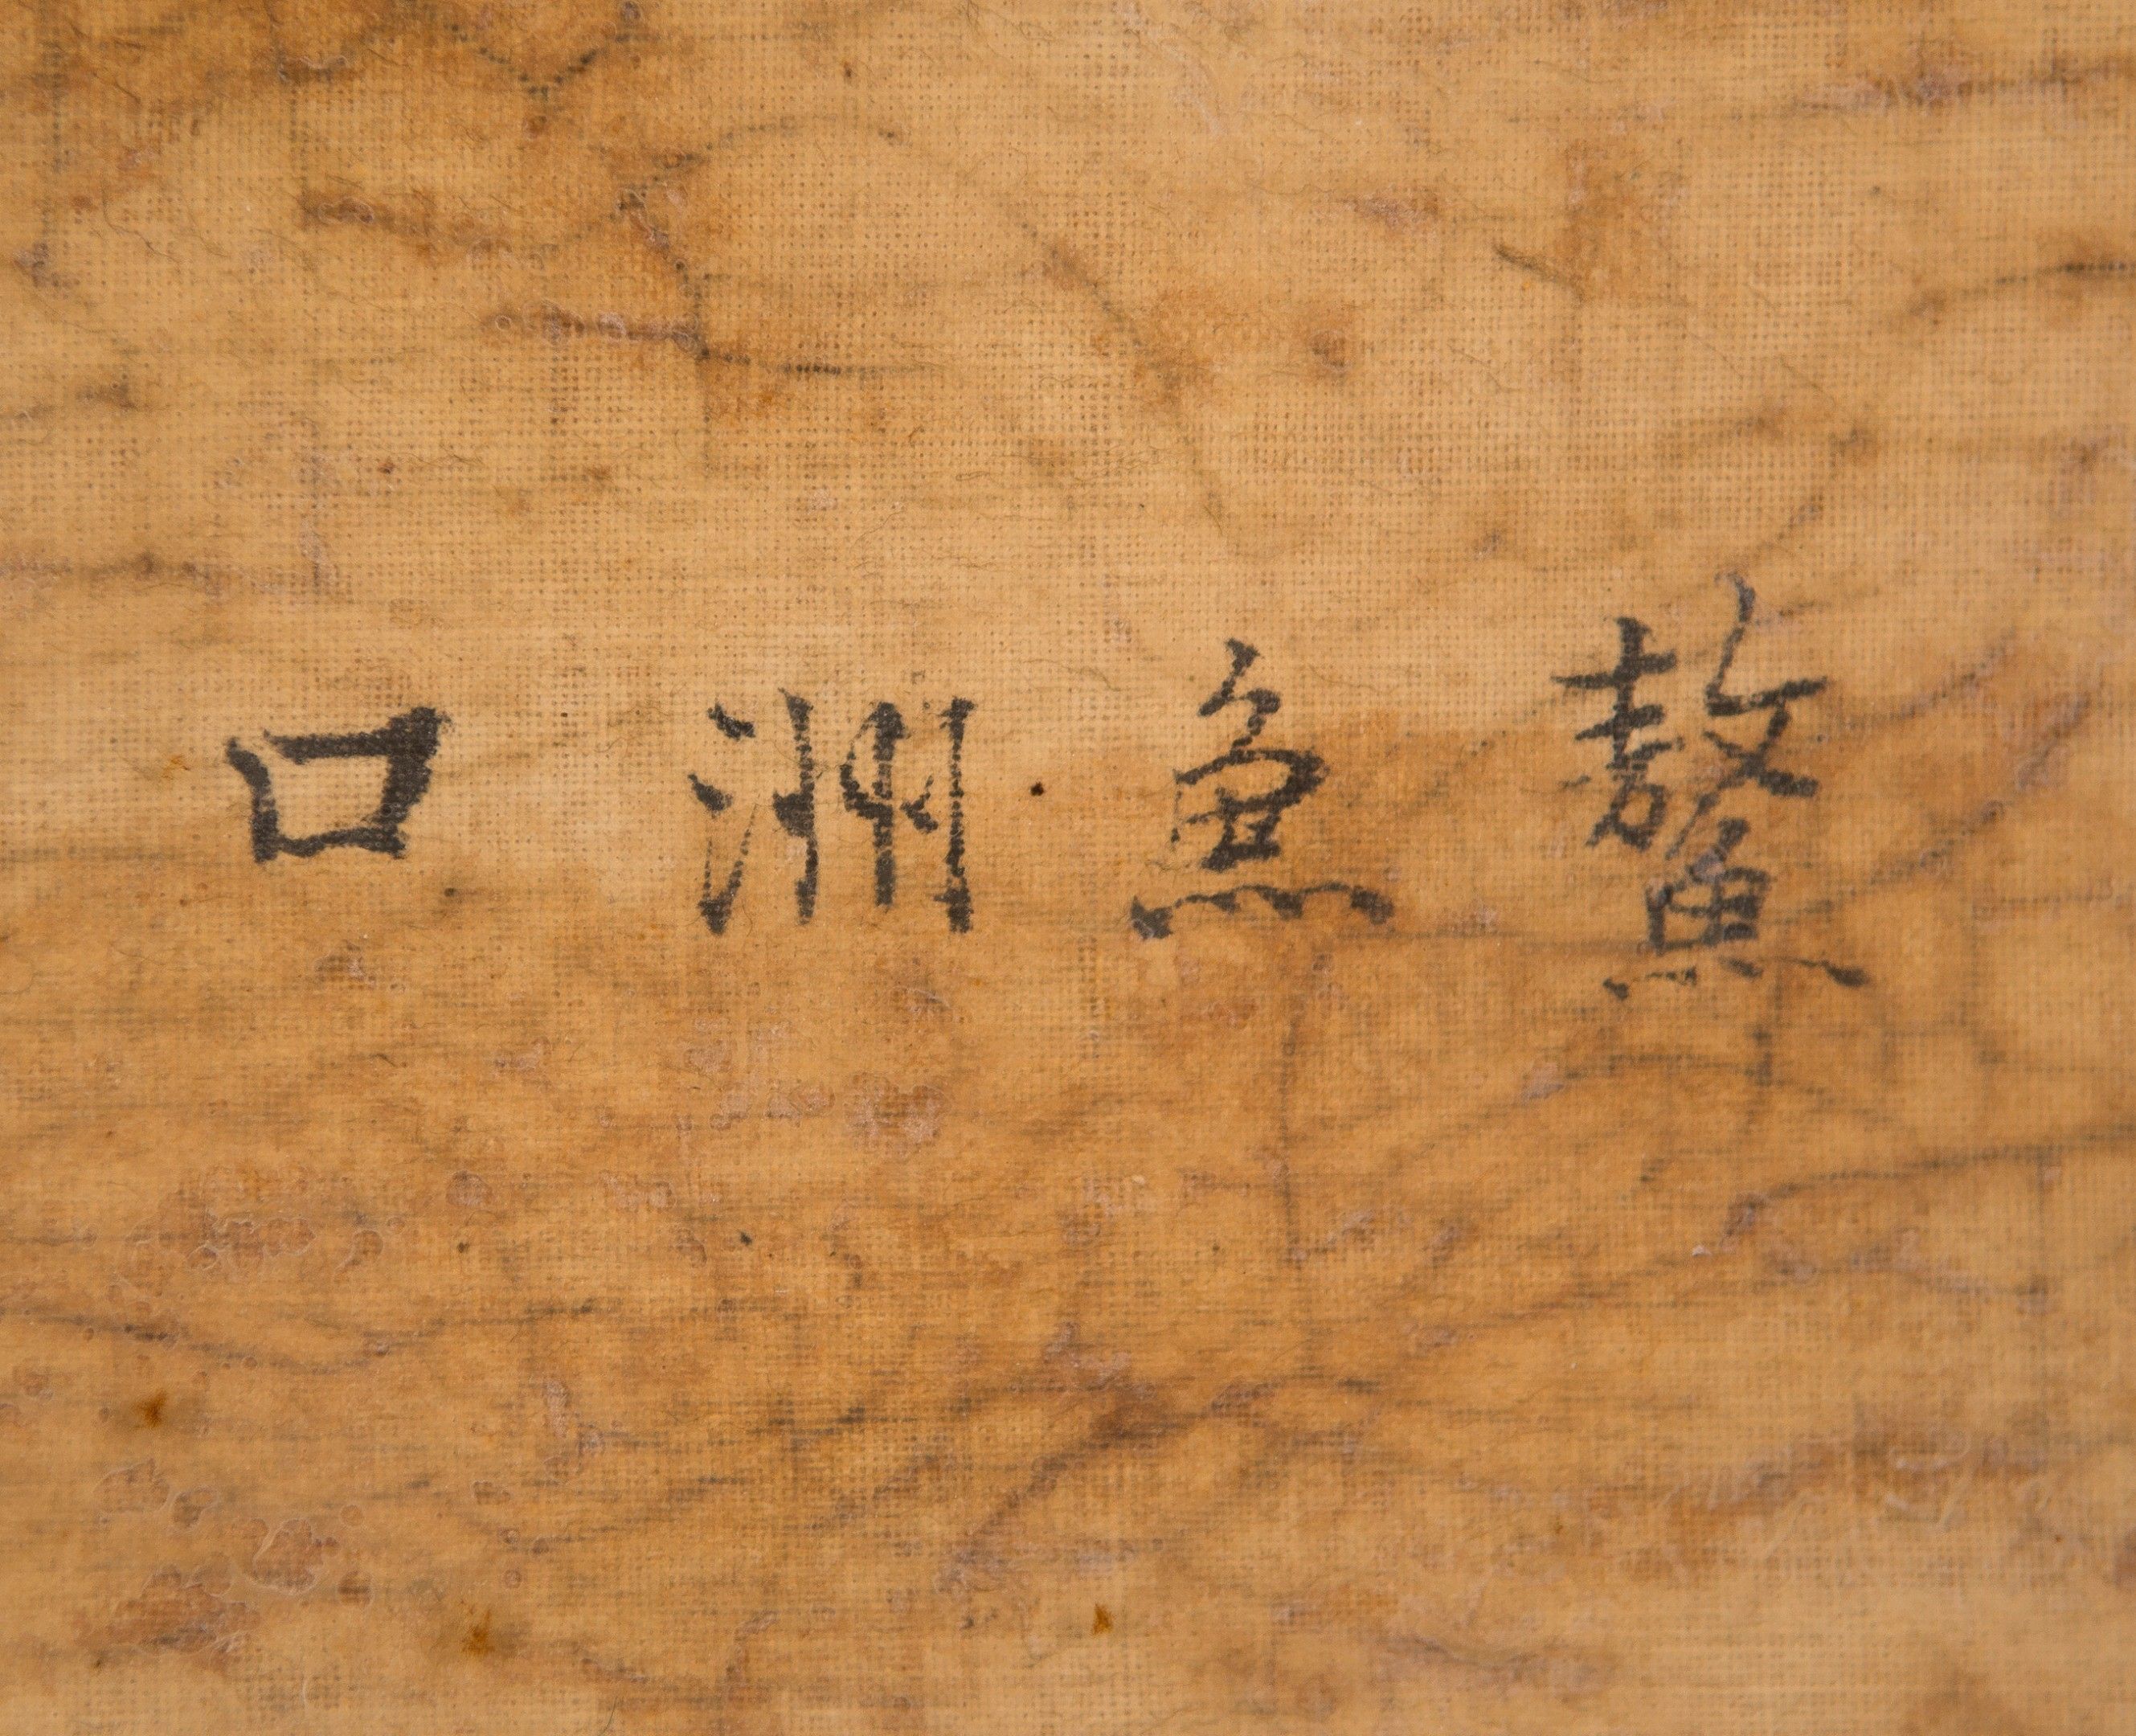 鰲魚洲口